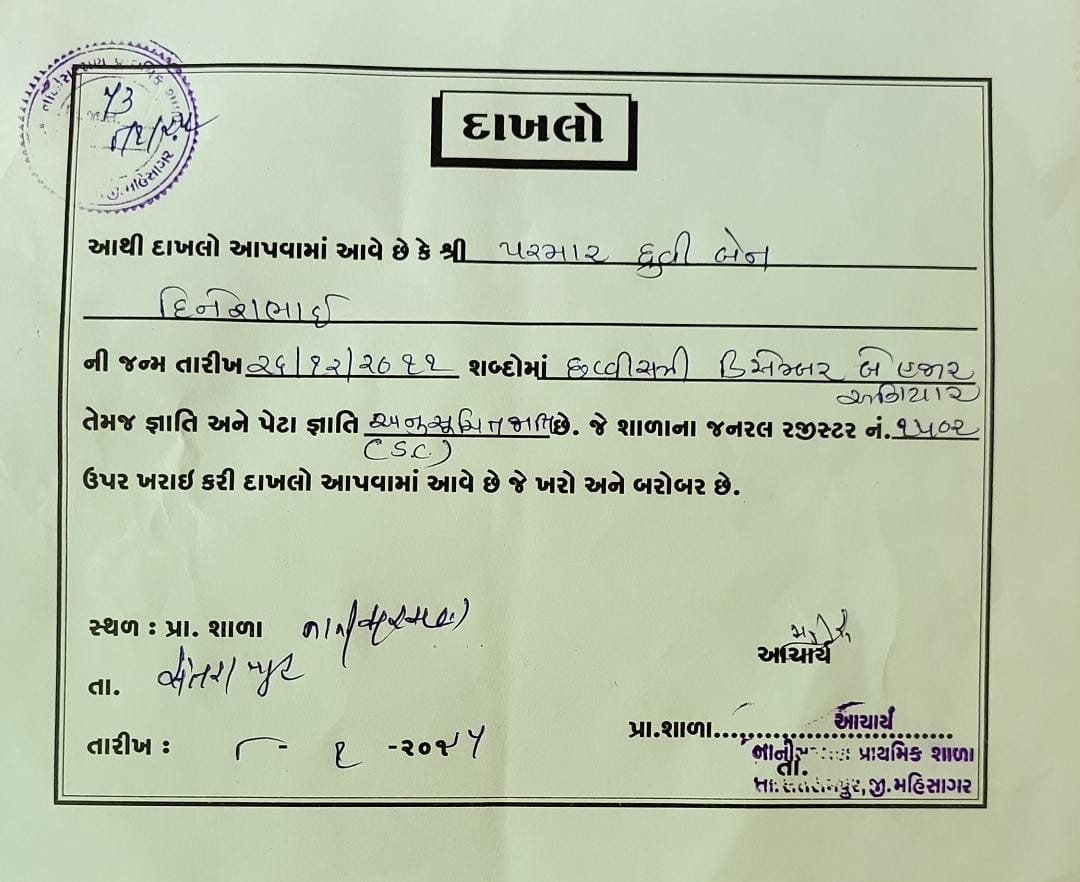 ૫૩
૮/૧/૨૫
જી.મહિસાગર
દાખલો
આથી દાખલો આપવામાં આવે છે કે શ્રી પરમાર ધ્રુવી બેન
દિનેશભાઈ
ની જન્મ તારીખ ૨૬/૧૨/૨૦૧૧ શબ્દોમાં છવ્વીસમી ડિસેમ્બર બે હજાર
અગિયાર
તેમજ જ્ઞાતિ અને પેટા જ્ઞાતિ અનુસૂચિત જાતિ છે. જે શાળાના જનરલ રજીસ્ટર નં. ૧૫૦૨
(SC)
ઉપર ખરાઇ કરી દાખલો આપવામાં આવે છે જે ખરો અને બરોબર છે.
સ્થળ : પ્રા. શાળા
આચાર્ય
તા. સંતરામપુર
પ્રા.શાળા.......................... આચાર્ય
તારીખ : ૮ - ૧ -૨૦૨૫
નાની પ્રાથમિક શાળા
તા.
તા. સંતરામપુર, જી.મહિસાગર